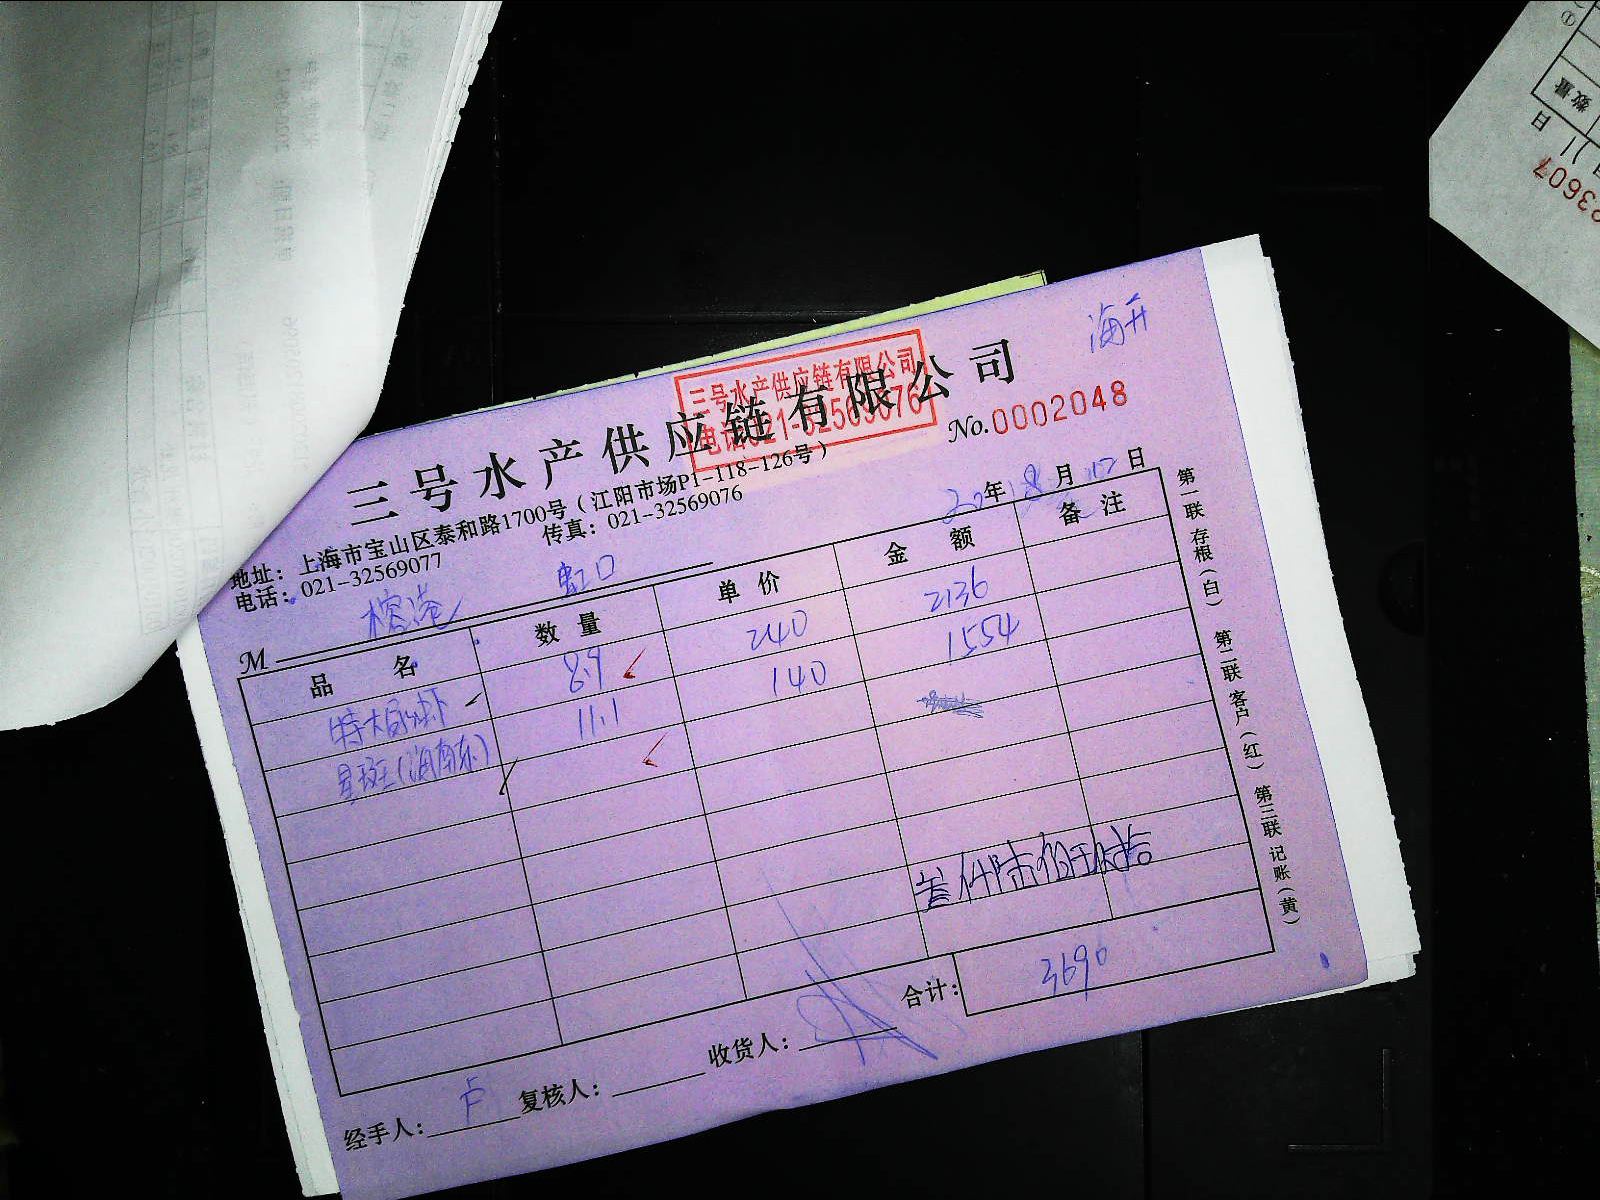 海开
三号水产供应链有限公司
三号水产供应链有限公司
电话:021-32569076
No.0002048
地址：上海市宝山区泰和路1700号（江阳市场P1-118-126号）
电话：021-32569077 传真：021-32569076
2018年8月12日
M 榕港 虹口
品名 数量 单价 金额 备注
特大尿虾 8.9 240 2136
星斑(海南东) 11.1 140 1554
叁仟陆佰玖拾
合计： 3690
经手人：卢 复核人： 收货人：
第一联 存根（白） 第二联 客户（红） 第三联 记账（黄）
数量
日
23607